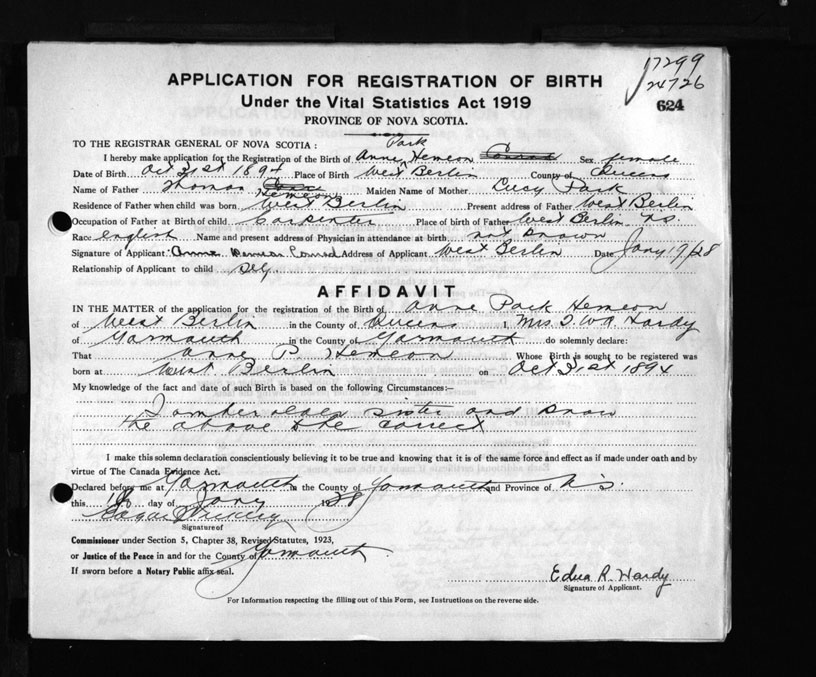 17299
24726
624
APPLICATION FOR REGISTRATION OF BIRTH
Under the Vital Statistics Act 1919
PROVINCE OF NOVA SCOTIA.
TO THE REGISTRAR GENERAL OF NOVA SCOTIA : Park
I hereby make application for the Registration of the Birth of Anne Hemeon Conrad Sex female
Date of Birth Oct 31st 1894 Place of Birth West Berlin County of Queens
Name of Father Thomas Hemeon Maiden Name of Mother Lucy Park
Residence of Father when child was born West Berlin Present address of Father West Berlin
Occupation of Father at Birth of child Carpenter Place of birth of Father West Berlin N.S.
Race english Name and present address of Physician in attendance at birth not known
Signature of Applicant Conrad Address of Applicant West Berlin Date Jany 17/28
Relationship of Applicant to child
AFFIDAVIT
IN THE MATTER of the application for the registration of the Birth of Anne Park Hemeon
of West Berlin in the County of Queens I, Mrs. Hardy
of Yarmouth in the County of Yarmouth do solemnly declare:
That Anne P. Hemeon Whose Birth is sought to be registered was
born at West Berlin on Oct 31st 1894
My knowledge of the fact and date of such Birth is based on the following Circumstances:—
I am her older sister and know
the above to be correct
I make this solemn declaration conscientiously believing it to be true and knowing that it is of the same force and effect as if made under oath and by
virtue of The Canada Evidence Act.
Declared before me at Yarmouth in the County of Yarmouth and Province of N.S.
this day of Jany 1928
Signature of
Commissioner under Section 5, Chapter 38, Revised Statutes, 1923,
or Justice of the Peace in and for the County of Yarmouth
If sworn before a Notary Public affix seal.
Edna R. Hardy
Signature of Applicant.
For Information respecting the filling out of this Form, see Instructions on the reverse side.